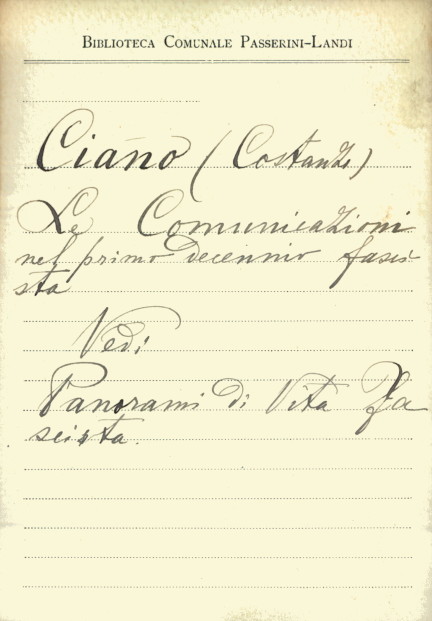 BIBLIOTECA COMUNALE PASSERINI-LANDI
Ciano (Costanzo)
Le Comunicazioni
nel primo decennio fasci-
sta
Vedi
Panorami di Vita Fa
scista.